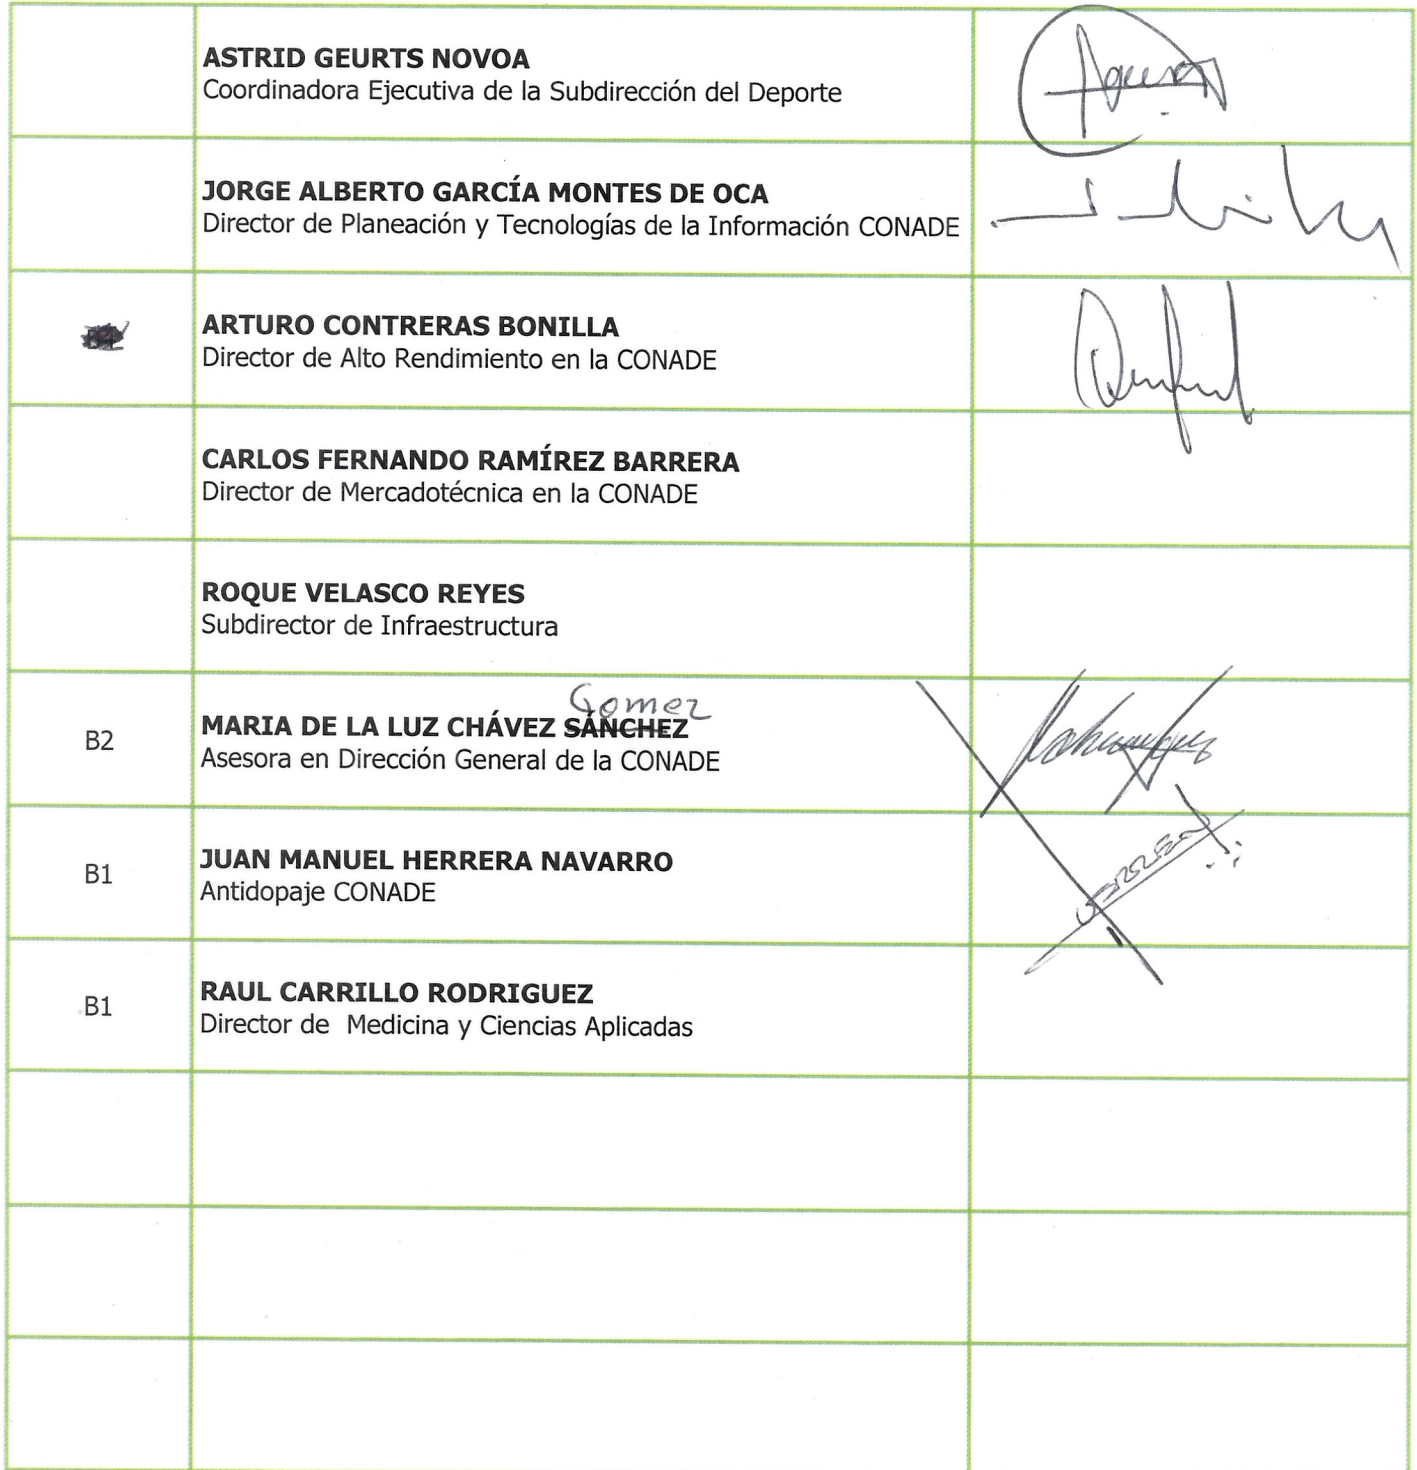 ASTRID GEURTS NOVOA
Coordinadora Ejecutiva de la Subdirección del Deporte
JORGE ALBERTO GARCÍA MONTES DE OCA
Director de Planeación y Tecnologías de la Información CONADE
ARTURO CONTRERAS BONILLA
Director de Alto Rendimiento en la CONADE
CARLOS FERNANDO RAMÍREZ BARRERA
Director de Mercadotécnica en la CONADE
ROQUE VELASCO REYES
Subdirector de Infraestructura
Gomez
B2 MARIA DE LA LUZ CHÁVEZ SÁNCHEZ
Asesora en Dirección General de la CONADE
B1 JUAN MANUEL HERRERA NAVARRO
Antidopaje CONADE
B1 RAUL CARRILLO RODRIGUEZ
Director de Medicina y Ciencias Aplicadas